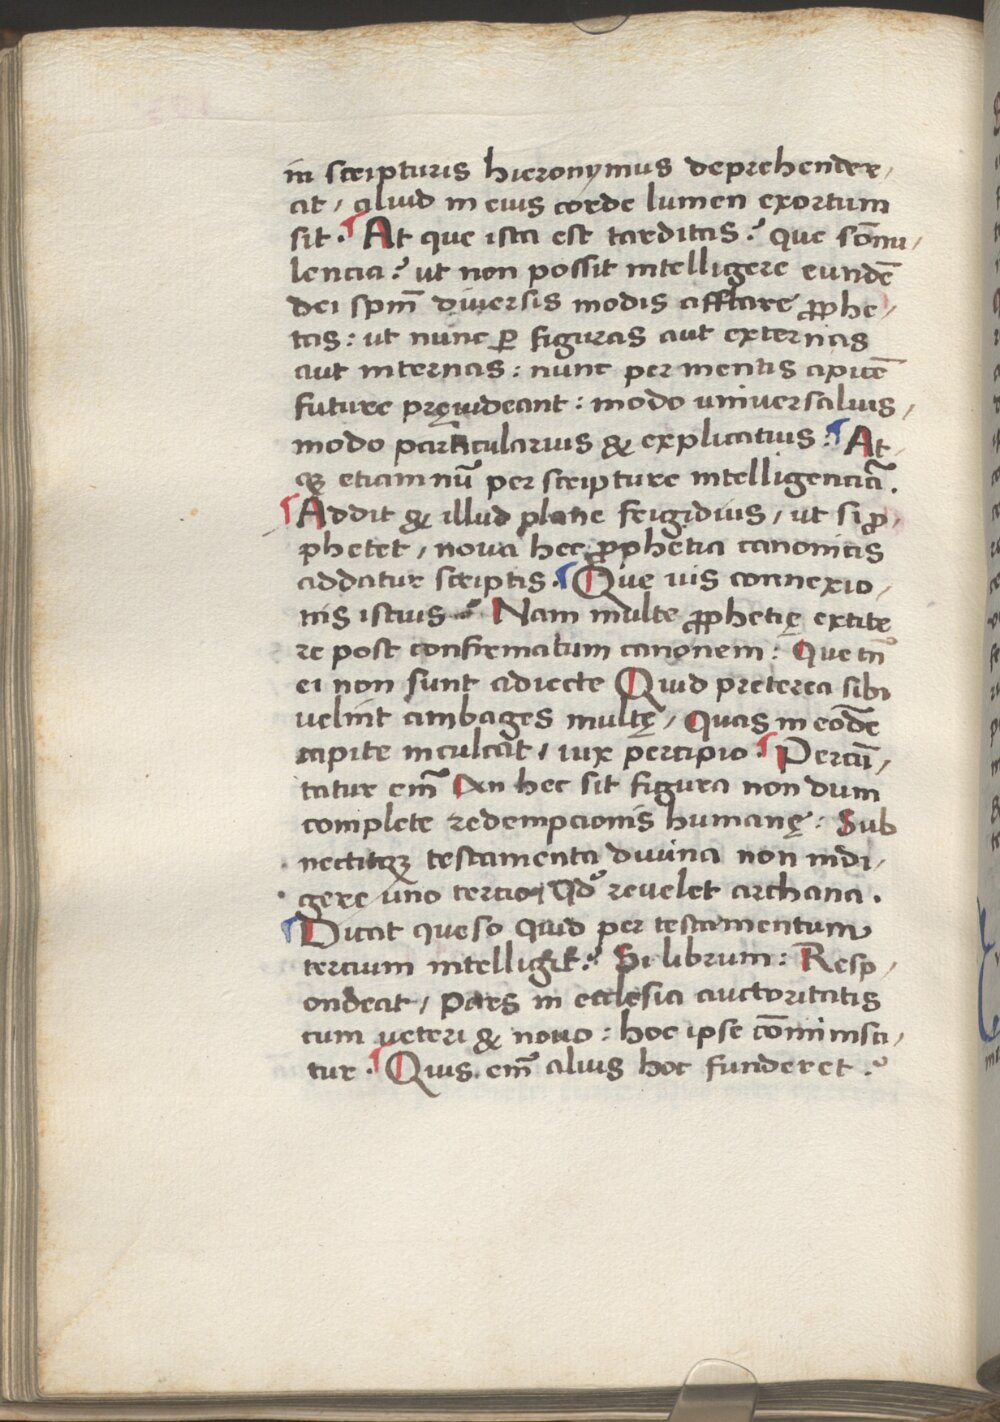 in scripturis hieronymus deprehender⸗
at / aliud in eius corde lumen exortum
sit . ¶ At que ista est tarditas ? que som̄nu⸗
lencia ? ut non possit intelligere eundē
dei spm̄ diuersis modis afflare ꝓphe⸗
tas : ut nunc ꝑ figuras aut externas
aut internas : nunc per mentis apicē
future pręuideant : modo universalius ,
modo particularius & explicatius : ¶ At⸗
qꝫ etiamnū per scripture intelligenciā .
¶ Addit & illud plane frigidius / ut si ꝓ⸗
phetet / nova hec ꝓphetia canonicis
addatur scriptis . ¶ Que uis connexio⸗
nis istius ? Nam multe ꝓphetię extite
re post confirmatum canonem : Que tn̄
ei non sunt adiecte Quid preterea sibi
uelint ambages multę / quas in eodē
capite inculcat / uix percipio . ¶ Percū⸗
tatur em̄ An hec sit figura non dum
complete redempcionis humanę : Sub
nectitqꝫ testamenta diuina non indi⸗
gere uno tercio / Qdͦ revelet archana .
¶ Dicat queso quid per testamentum
tercium intelligit ? Si librum : Resp⸗
ondeat / Pars in ecclesia auctoritatis
cum ueteri & nouo : hoc ipse cōminisca⸗
tur . ¶ Quis em̄ alius hoc funderet ?